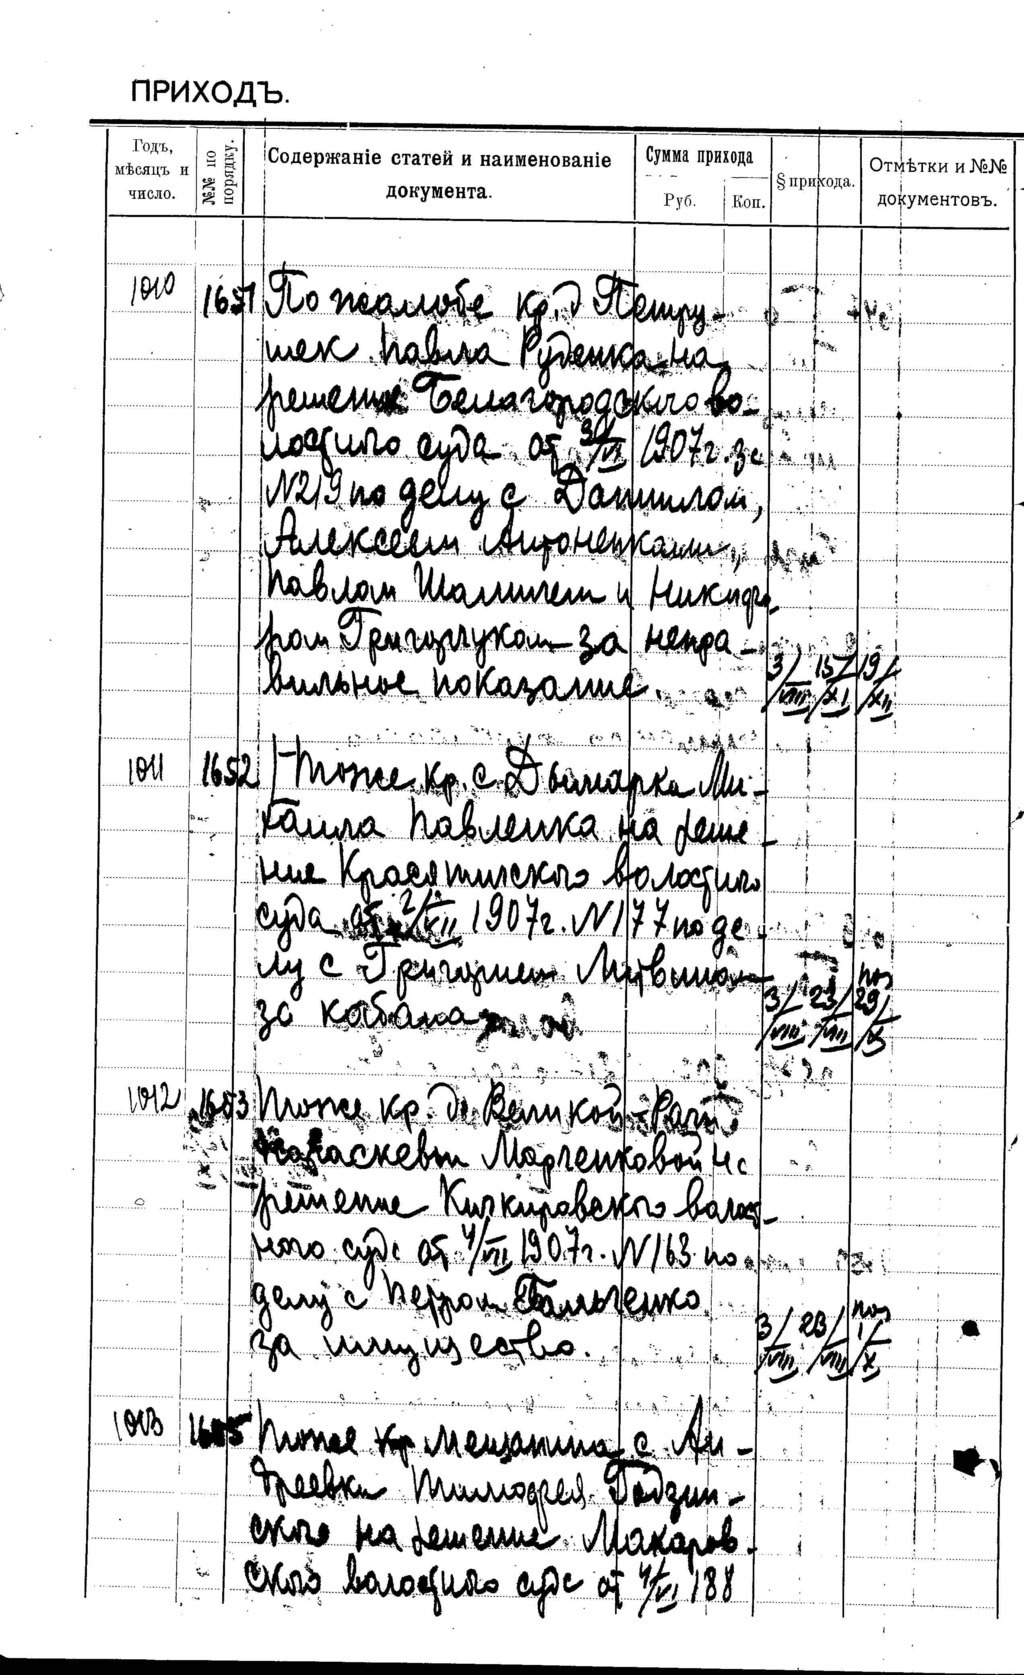 ПРИХОДЪ.
Годъ, мѣсяцъ и число.
№№ по порядку.
Содержаніе статей и наименованіе документа.
Сумма прихода
Руб. Коп.
§ прихода.
Отмѣтки и №№ документовъ.
1010 1651 По жалобе кр. д Петру-
шек Павла Руденка на
решение Белагородского во-
лостного суда от 30/VI 1907 г. за
N219 по делу с Даниилом,
Алексеем Антоненками,
Павлом и Никифо-
ром Григорчуком за непра-
вильное показание. 3/VIII 15/XI 19/XII
1011 1652 Тоже кр. с Дымарка Ми-
хаила Павленка на реше-
ние Красятичского волостного
суда от 2/VII 1907 г. N177 по де-
лу с Григорием Литвином
за кабана 3/VIII 23/VIII 29/X
1012 1653 Тоже кр. д. Великой Рачи
Параскевы Марченковой на
решение Кичкировского волост-
ного суда от 4/VII 1907 г. N163 по
делу с Петром
за имущество. 3/VIII 23/VIII 1/X
1013 1655 Тоже кр мещанина с Ан-
дреевки Тимофея Годзин-
ского на решение Макаров-
ского волостного суда от 4/VI 188